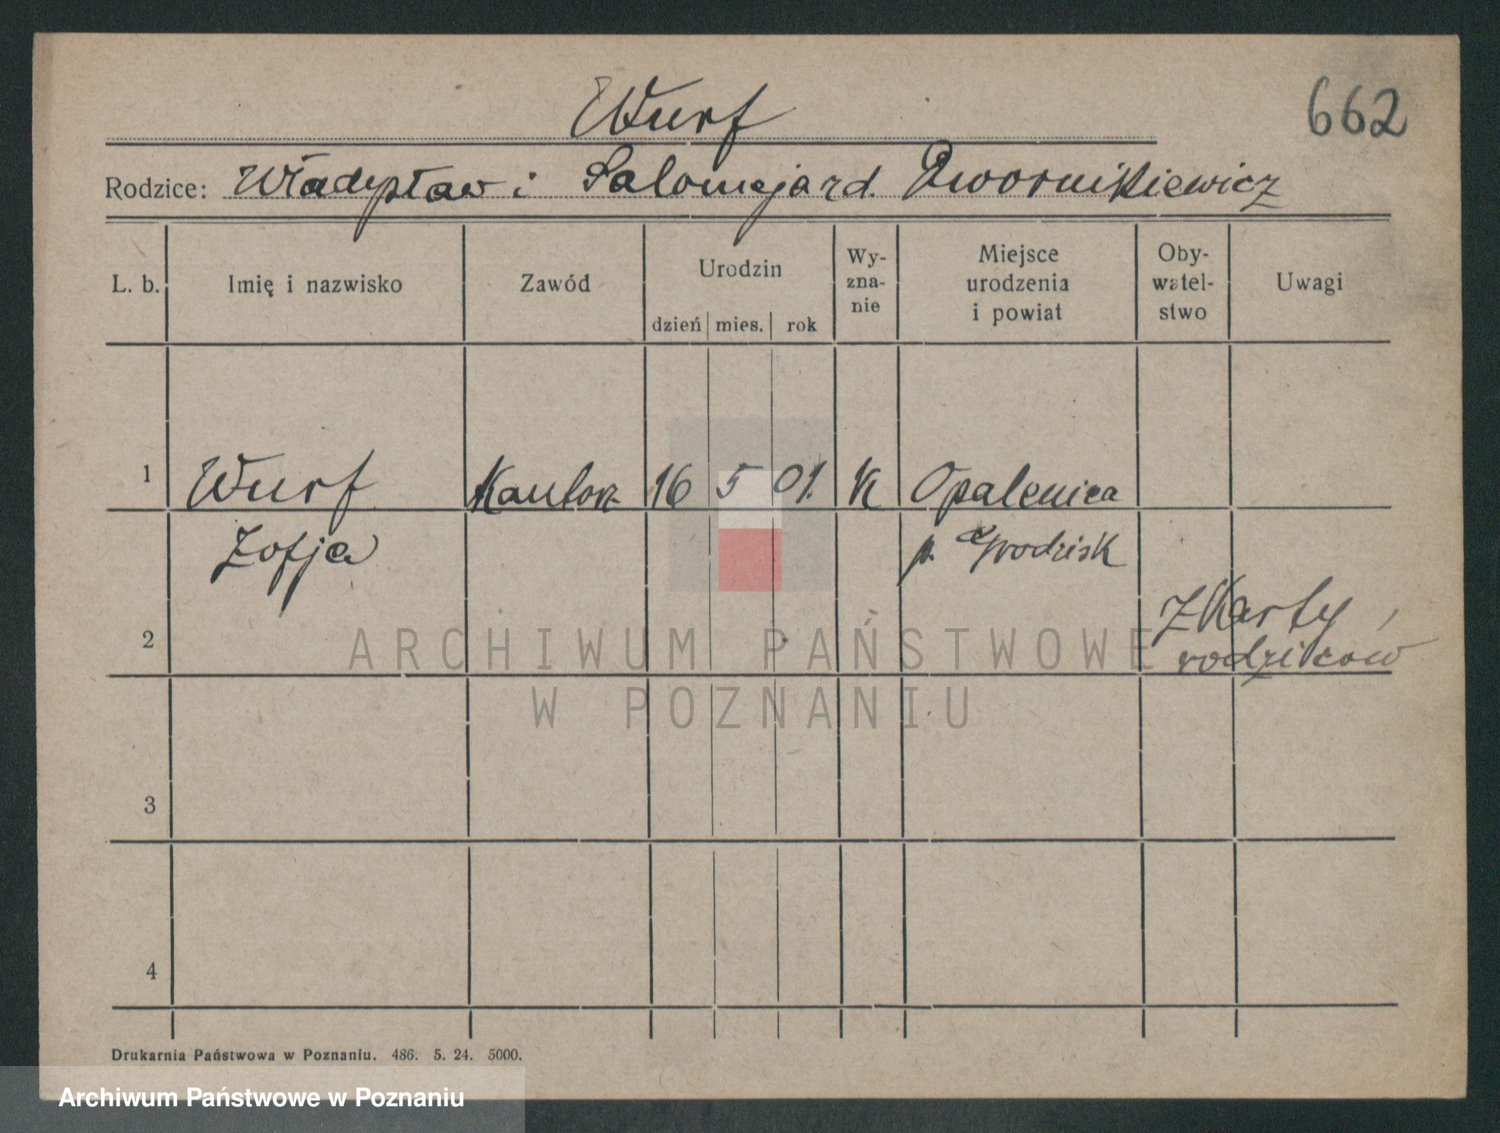 Wurf
662
Rodzice: Władysław i Salomeja zd. Dwornikiewicz
L. b.
Imię i nazwisko
Zawód
Urodzin
dzień mies. rok
Wy-
zna-
nie
Miejsce
urodzenia
i powiat
Oby-
watel-
stwo
Uwagi
1 Wurf Kantork 16 5 01. K Opalenica
Zofja p. Grodzisk
2
Z Karty
rodziców
3
4
ARCHIWUM PAŃSTWOWE
W POZNANIU
Drukarnia Państwowa w Poznaniu. 486. 5. 24. 5000.
Archiwum Państwowe w Poznaniu